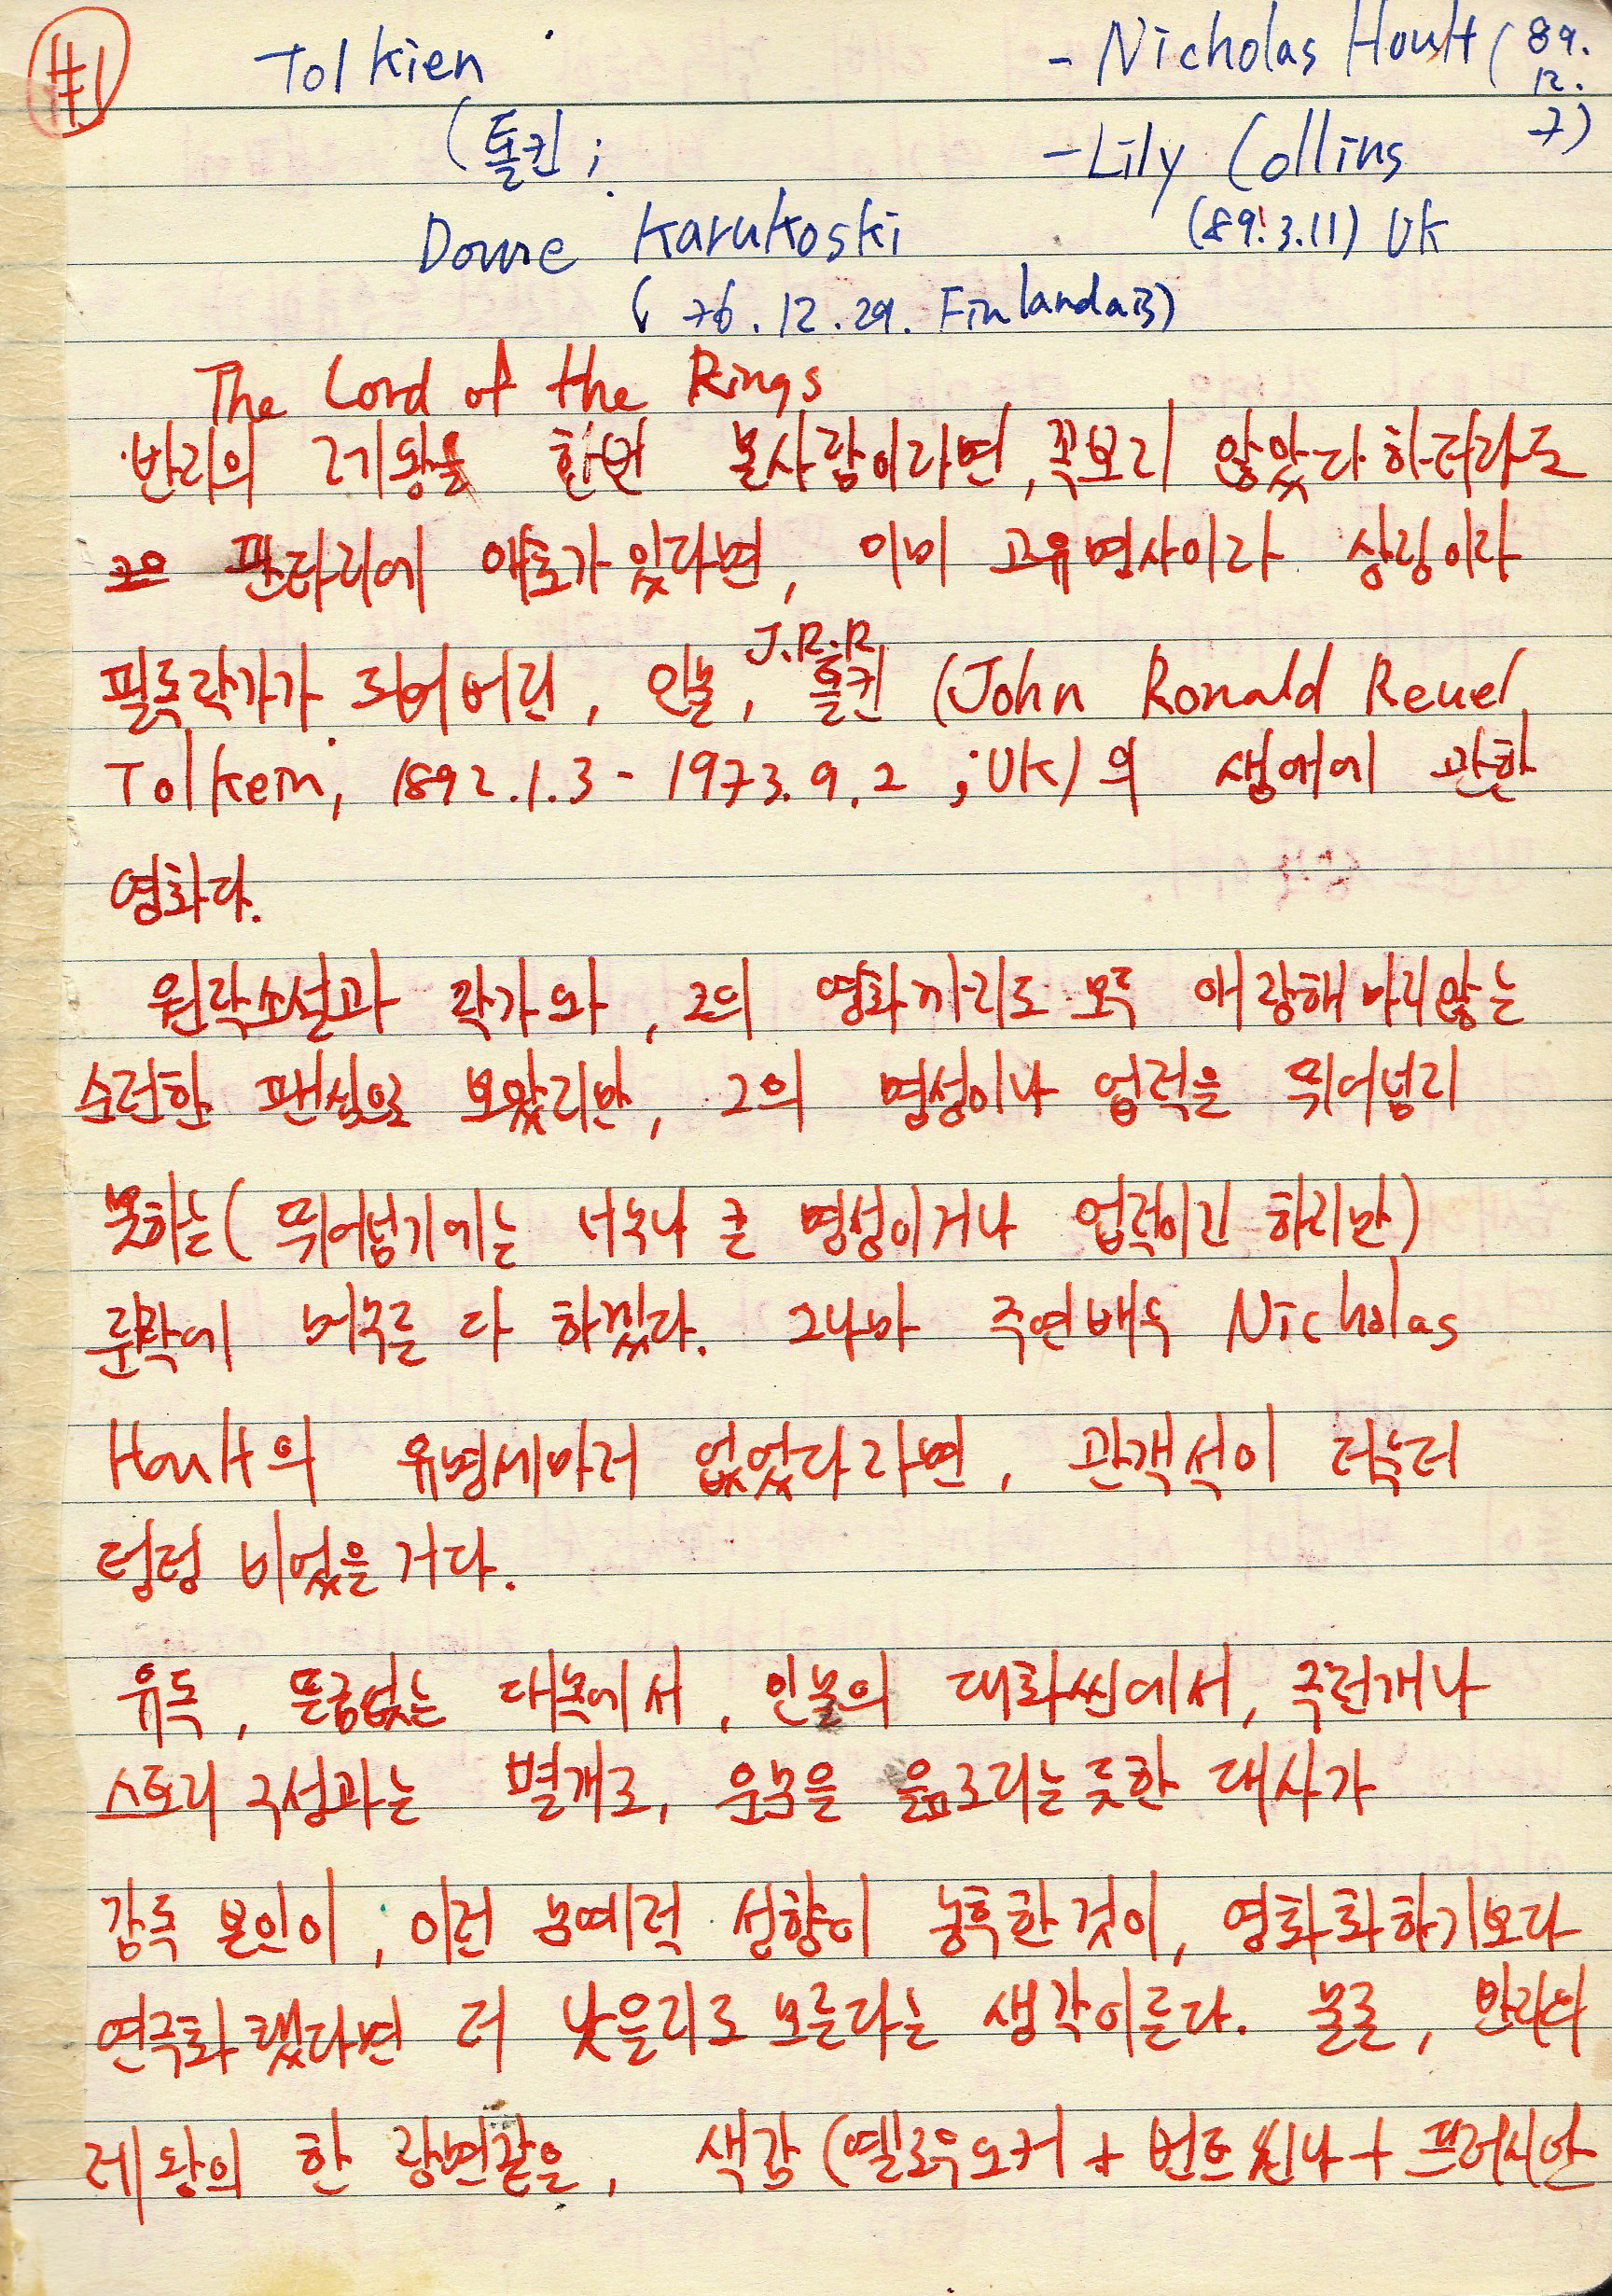 #1
Tolkien
- Nicholas Hoult (89.
12.
7)
(톨킨;
- Lily Collins
(89.3.11) UK
Dome Karukoski
(76.12.29. Finlandaㅎ)
The Lord of the Rings
반지의 제왕을 한번 본사람이라면, 꼭보지 않았다하더라도
판타지에 애호가 있다면, 이미 고유명사이라 상징이라
J.R.R
필독작가가 되어버린, 인물, 톨킨 (John Ronald Reuel
Tolkein, 1892.1.3 - 1973.9.2 ; UK)의 생애에 관한
영화다.
원작소설과 작가와, 그의 영화까지도 모두 애장해마지않는
순전한 팬심으로 보았지만, 그의 명성이나 업적을 뛰어넘지
못하는 (뛰어넘기에는 너무나 큰 명성이거나 업적이긴 하지만)
준작에 머무를 다 하겠다. 그나마 주연배우 Nicholas
Hoult의 유명세마저 없었다라면, 관객석이 더욱더
텅텅 비었을 거다.
유독, 뜬금없는 대목에서, 인물의 대화씬에서, 극전개나
스토리 구성과는 별개로, 운문을 읊조리는듯한 대사가
감독 본인이, 이런 문예적 성향이 농후한것이, 영화화하기보다
연극화했다면 더 낫을지도 모른다는 생각이든다. 물론, 반지의
제왕의 한 장면같은, 색감 (옐로우오커 + 번트씬나 + 프러시안